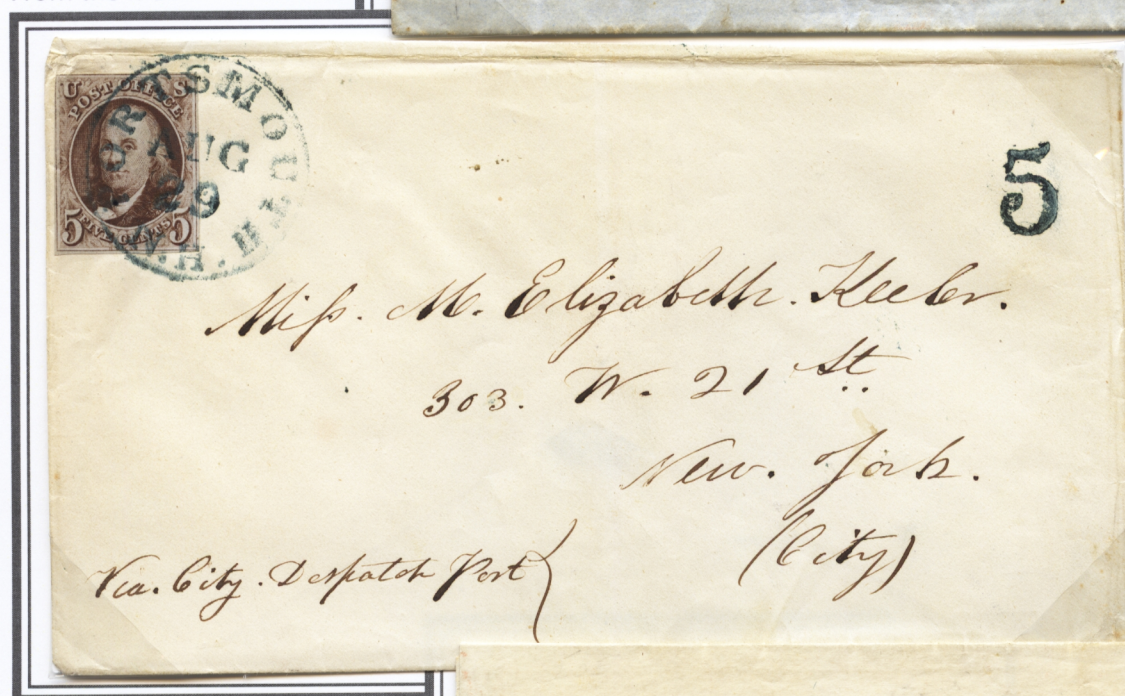 U S
POST OFFICE
5 FIVE CENTS 5
PORTSMOUTH N.H.
AUG
29
5
Miss. M. Elizabeth. Keeler.
303. W. 21 St.
New. York.
(City)
Via. City. Despatch Post